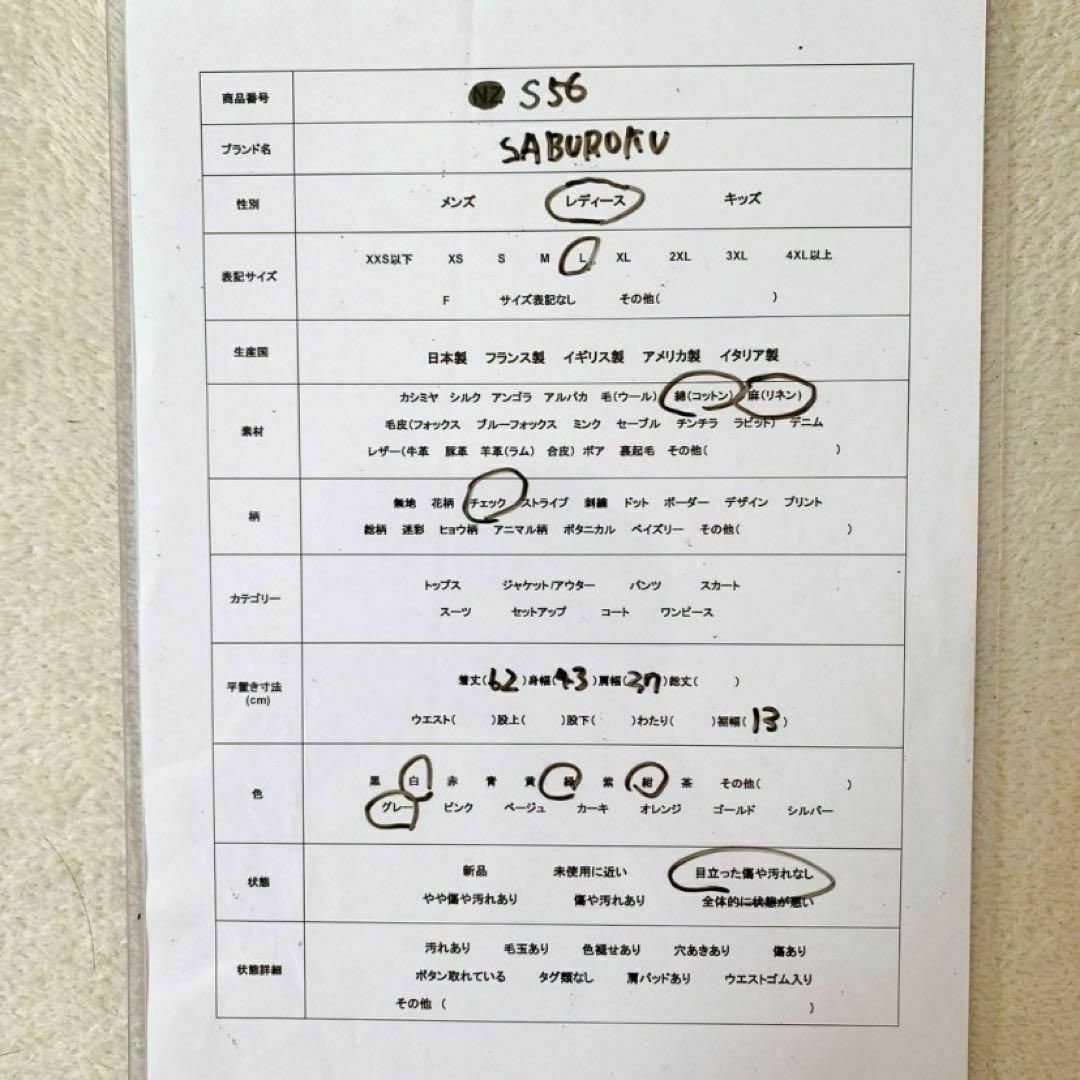 商品番号 NZ S56
ブランド名 SABUROKU
性別 メンズ レディース キッズ
表記サイズ XXS以下 XS S M L XL 2XL 3XL 4XL以上
F サイズ表記なし その他( )
生産国 日本製 フランス製 イギリス製 アメリカ製 イタリア製
素材 カシミヤ シルク アンゴラ アルパカ 毛(ウール) 綿(コットン) 麻(リネン)
毛皮(フォックス ブルーフォックス ミンク セーブル チンチラ ラビット) デニム
レザー(牛革 豚革 羊革(ラム) 合皮) ボア 裏起毛 その他( )
柄 無地 花柄 チェック ストライプ 刺繍 ドット ボーダー デザイン プリント
総柄 迷彩 ヒョウ柄 アニマル柄 ボタニカル ペイズリー その他( )
カテゴリー トップス ジャケット/アウター パンツ スカート
スーツ セットアップ コート ワンピース
平置き寸法(cm) 着丈(62)身幅(43)肩幅(37)総丈( )
ウエスト( )股上( )股下( )わたり( )裾幅(13)
色 黒 白 赤 青 黄 緑 紫 紺 茶 その他( )
グレー ピンク ベージュ カーキ オレンジ ゴールド シルバー
状態 新品 未使用に近い 目立った傷や汚れなし
やや傷や汚れあり 傷や汚れあり 全体的に状態が悪い
状態詳細 汚れあり 毛玉あり 色褪せあり 穴あきあり 傷あり
ボタン取れている タグ類なし 肩パッドあり ウエストゴム入り
その他 ( )